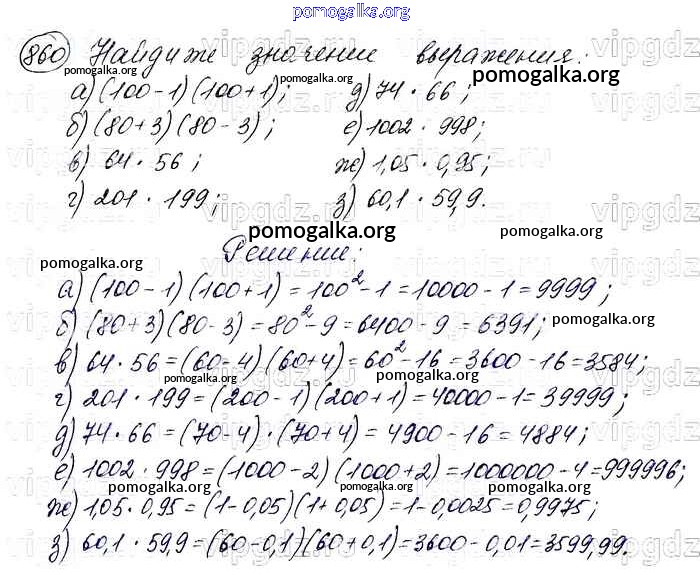 pomogalka.org
860 Найдите значение выражения:
pomogalka.org pomogalka.org pomogalka.org
а) (100-1)(100+1); д) 74 · 66;
б) (80+3)(80-3); е) 1002 · 998;
pomogalka.org pomogalka.org
в) 64 · 56; ж) 1,05 · 0,95;
г) 201 · 199; з) 60,1 · 59,9.
pomogalka.org pomogalka.org pomogalka.org
Решение:
pomogalka.org pomogalka.org
а) (100-1)(100+1) = 100² - 1 = 10000 - 1 = 9999;
б) (80+3)(80-3) = 80² - 9 = 6400 - 9 = 6391;
pomogalka.org
в) 64 · 56 = (60-4)(60+4) = 60² - 16 = 3600 - 16 = 3584;
pomogalka.org pomogalka.org
г) 201 · 199 = (200-1)(200+1) = 40000 - 1 = 39999;
pomogalka.org
д) 74 · 66 = (70-4) · (70+4) = 4900 - 16 = 4884;
pomogalka.org pomogalka.org
е) 1002 · 998 = (1000-2)(1000+2) = 1000000 - 4 = 999996;
pomogalka.org pomogalka.org pomogalka.org
ж) 1,05 · 0,95 = (1-0,05)(1+0,05) = 1 - 0,0025 = 0,9975;
pomogalka.org pomogalka.org
з) 60,1 · 59,9 = (60-0,1)(60+0,1) = 3600 - 0,01 = 3599,99.
pomogalka.org